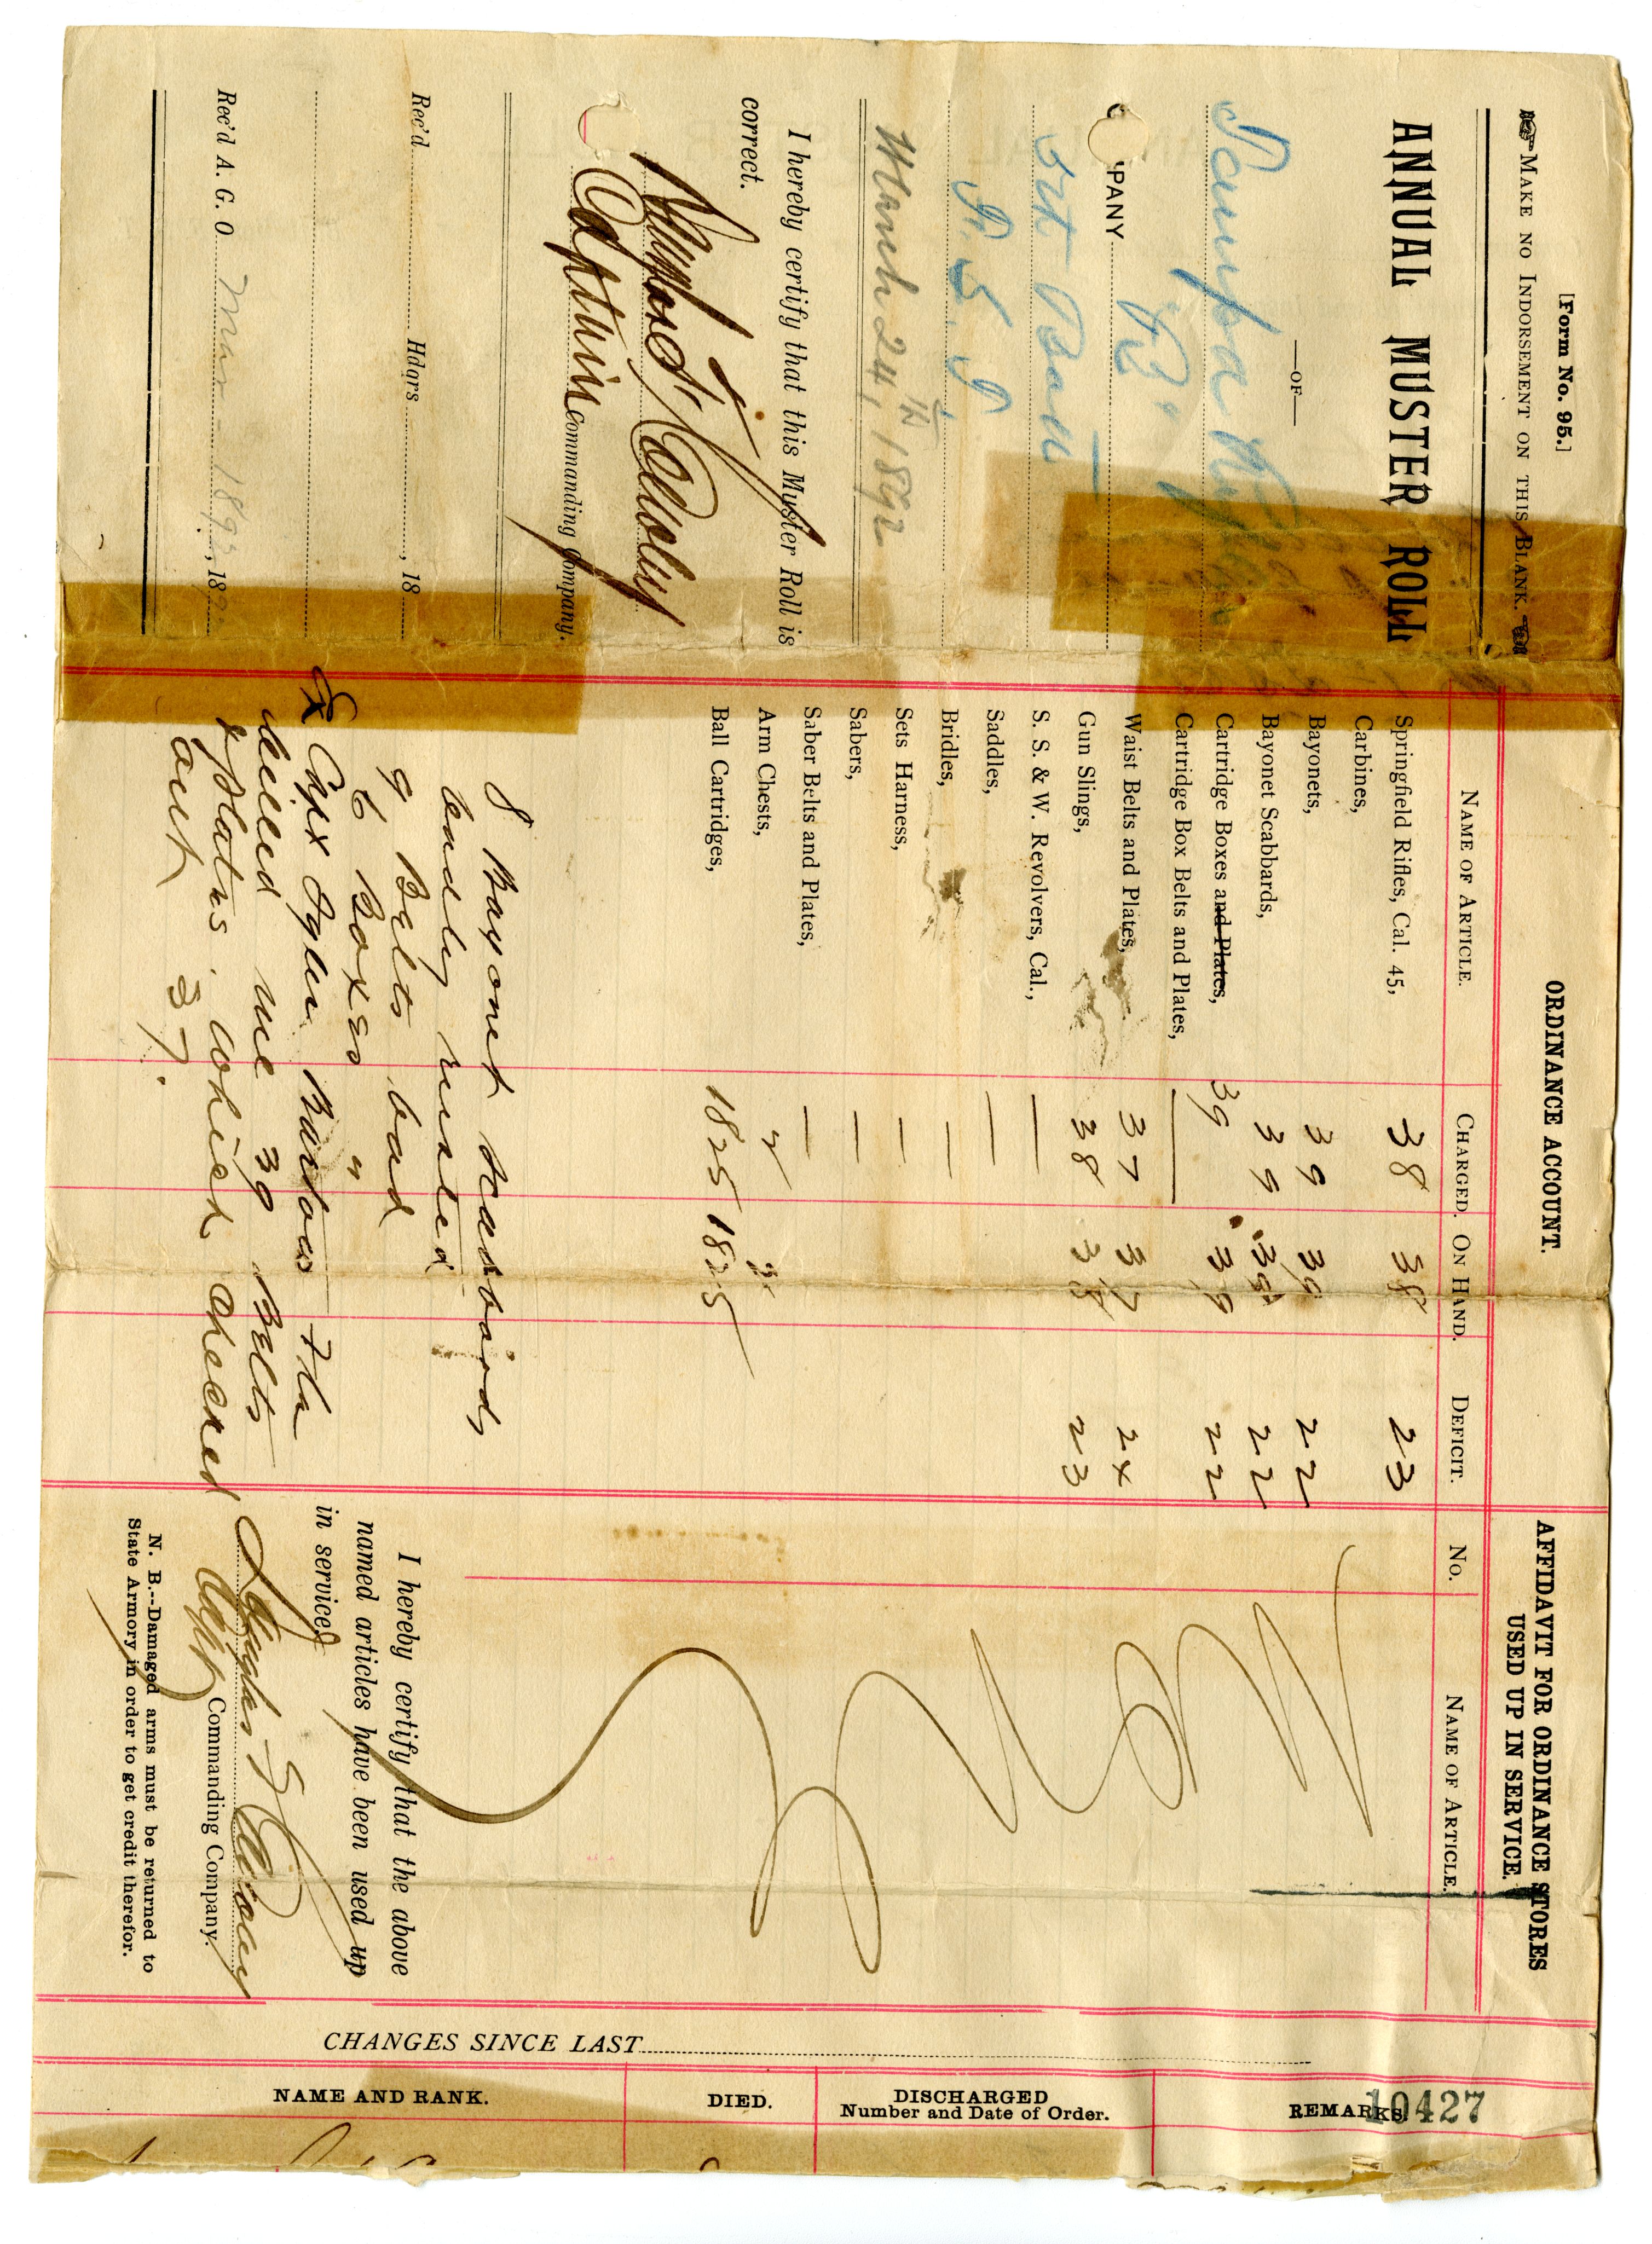 [Form No. 95.]
MAKE NO INDORSEMENT ON THIS BLANK.
ANNUAL MUSTER ROLL
—OF—
Tampa
PANY "B"
3rd Batt
F. S. T.
March 24th, 1892
I hereby certify that this Muster Roll is
correct.
Captain Commanding Company.
Rec'd Hdqrs , 18
Rec'd A. G. O. Mar 1892, 189
ORDINANCE ACCOUNT.
NAME OF ARTICLE. CHARGED. ON HAND. DEFICIT.
Springfield Rifles, Cal. 45, 38 38 23
Carbines,
Bayonets, 39 39 22
Bayonet Scabbards, 39 39 22
Cartridge Boxes and Plates, 39 39 22
Cartridge Box Belts and Plates, —
Waist Belts and Plates, 37 37 24
Gun Slings, 38 38 23
S. S. & W. Revolvers, Cal., —
Saddles, —
Bridles, —
Sets Harness, —
Sabers, —
Saber Belts and Plates, —
Arm Chests, 2 2
Ball Cartridges, 1825 1825
8 Bayonet scabbards
badly rusted
9 Belts bad
6 Boxes "
me 39 Belts
& plates. which checked
out 37.
AFFIDAVIT FOR ORDINANCE STORES
USED UP IN SERVICE.
NO. NAME OF ARTICLE.
I hereby certify that the above
named articles have been used up
in service.
Capt Commanding Company.
N. B.--Damaged arms must be returned to
State Armory in order to get credit therefor.
CHANGES SINCE LAST
NAME AND RANK. DIED. DISCHARGED REMARKS.
Number and Date of Order.
10427